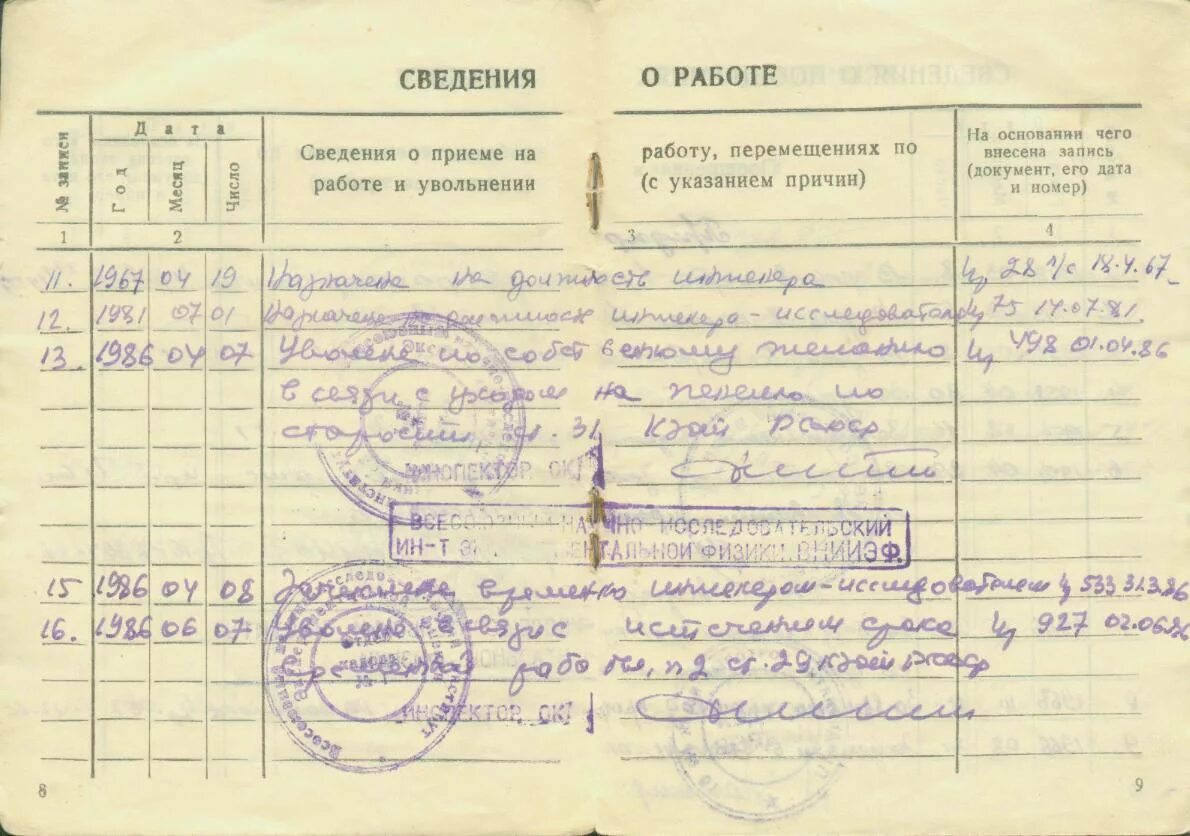 СВЕДЕНИЯ О РАБОТЕ
№ записи
Дата
Год
Месяц
Число
Сведения о приеме на работу, перемещениях по
работе и увольнении (с указанием причин)
На основании чего
внесена запись
(документ, его дата
и номер)
1 2 3 4
11. 1967 04 19 Назначена на должность инженера 28 л/с 18.4.67
12. 1981 07 01 Назначена на должность инженера-исследователя 75 14.07.81
13. 1986 04 07 Уволена по собственному желанию 498 01.04.86
в связи с уходом на пенсию по
старости ст. 31 КЗоТ РСФСР
ИНСПЕКТОР ОК
ВСЕСОЮЗНЫЙ НАУЧНО-ИССЛЕДОВАТЕЛЬСКИЙ
ИН-Т ЭК МЕНТАЛЬНОЙ ФИЗИКИ ВНИИЭФ
15 1986 04 08 Зачислена временно инженером-исследователем 533 31.3.86
16. 1986 06 07 Уволена в связи с истечением срока 927 02.06.86
временной работы, п 2 ст. 29 КЗоТ РСФСР
ИНСПЕКТОР ОК
8 9